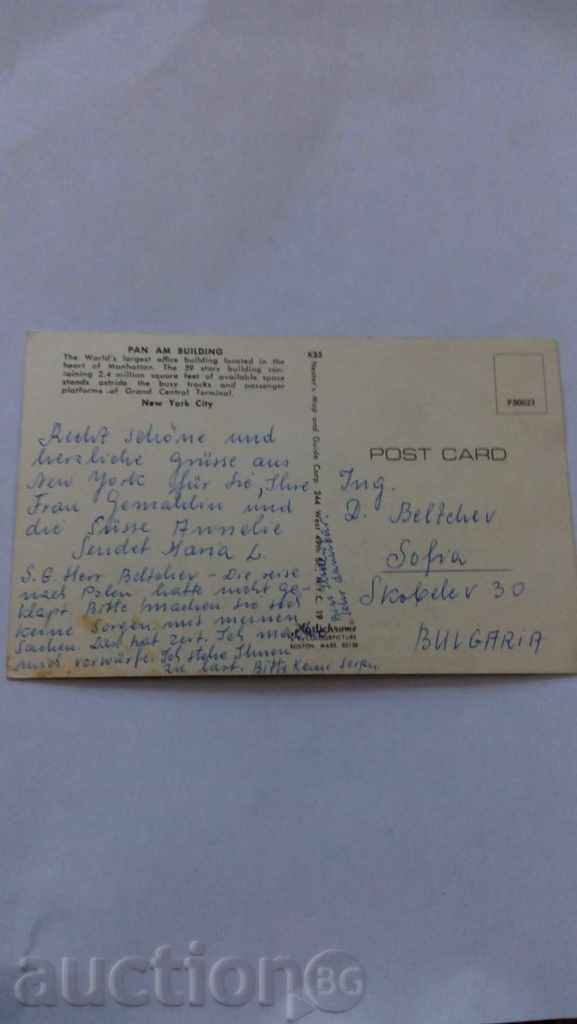 PAN AM BUILDING
The World's largest office building located in the
heart of Manhattan. The 59 story building con-
taining 2.4 million square feet of available space
stands astride the busy tracks and passenger
platforms of Grand Central Terminal.
New York City
Recht schöne und
herzliche Grüsse aus
New York für Sie, Ihre
Frau Gemahlin und
die Süsse Annelie
Sendet Maria L.
S.G. Herr Beltchev - Die reise
nach Polen hatte nicht ge-
klapt. Bitte machen Sie sich
keine Sorgen mit meinen
Sachen. Das hat Zeit. Ich mache
mich vorwürfe. Ich stehe Ihnen
zu last. Bitte keine
K35
Nester's Map and Guide Corp. 244 West
N.Y.C. 19
Plastichrome
COLOURPICTURE
BOSTON, MASS. 02130
Bin
sehr
P50023
POST CARD
Ing.
D. Beltchev
Sofia
Skobelev 30
BULGARIA
auction BG